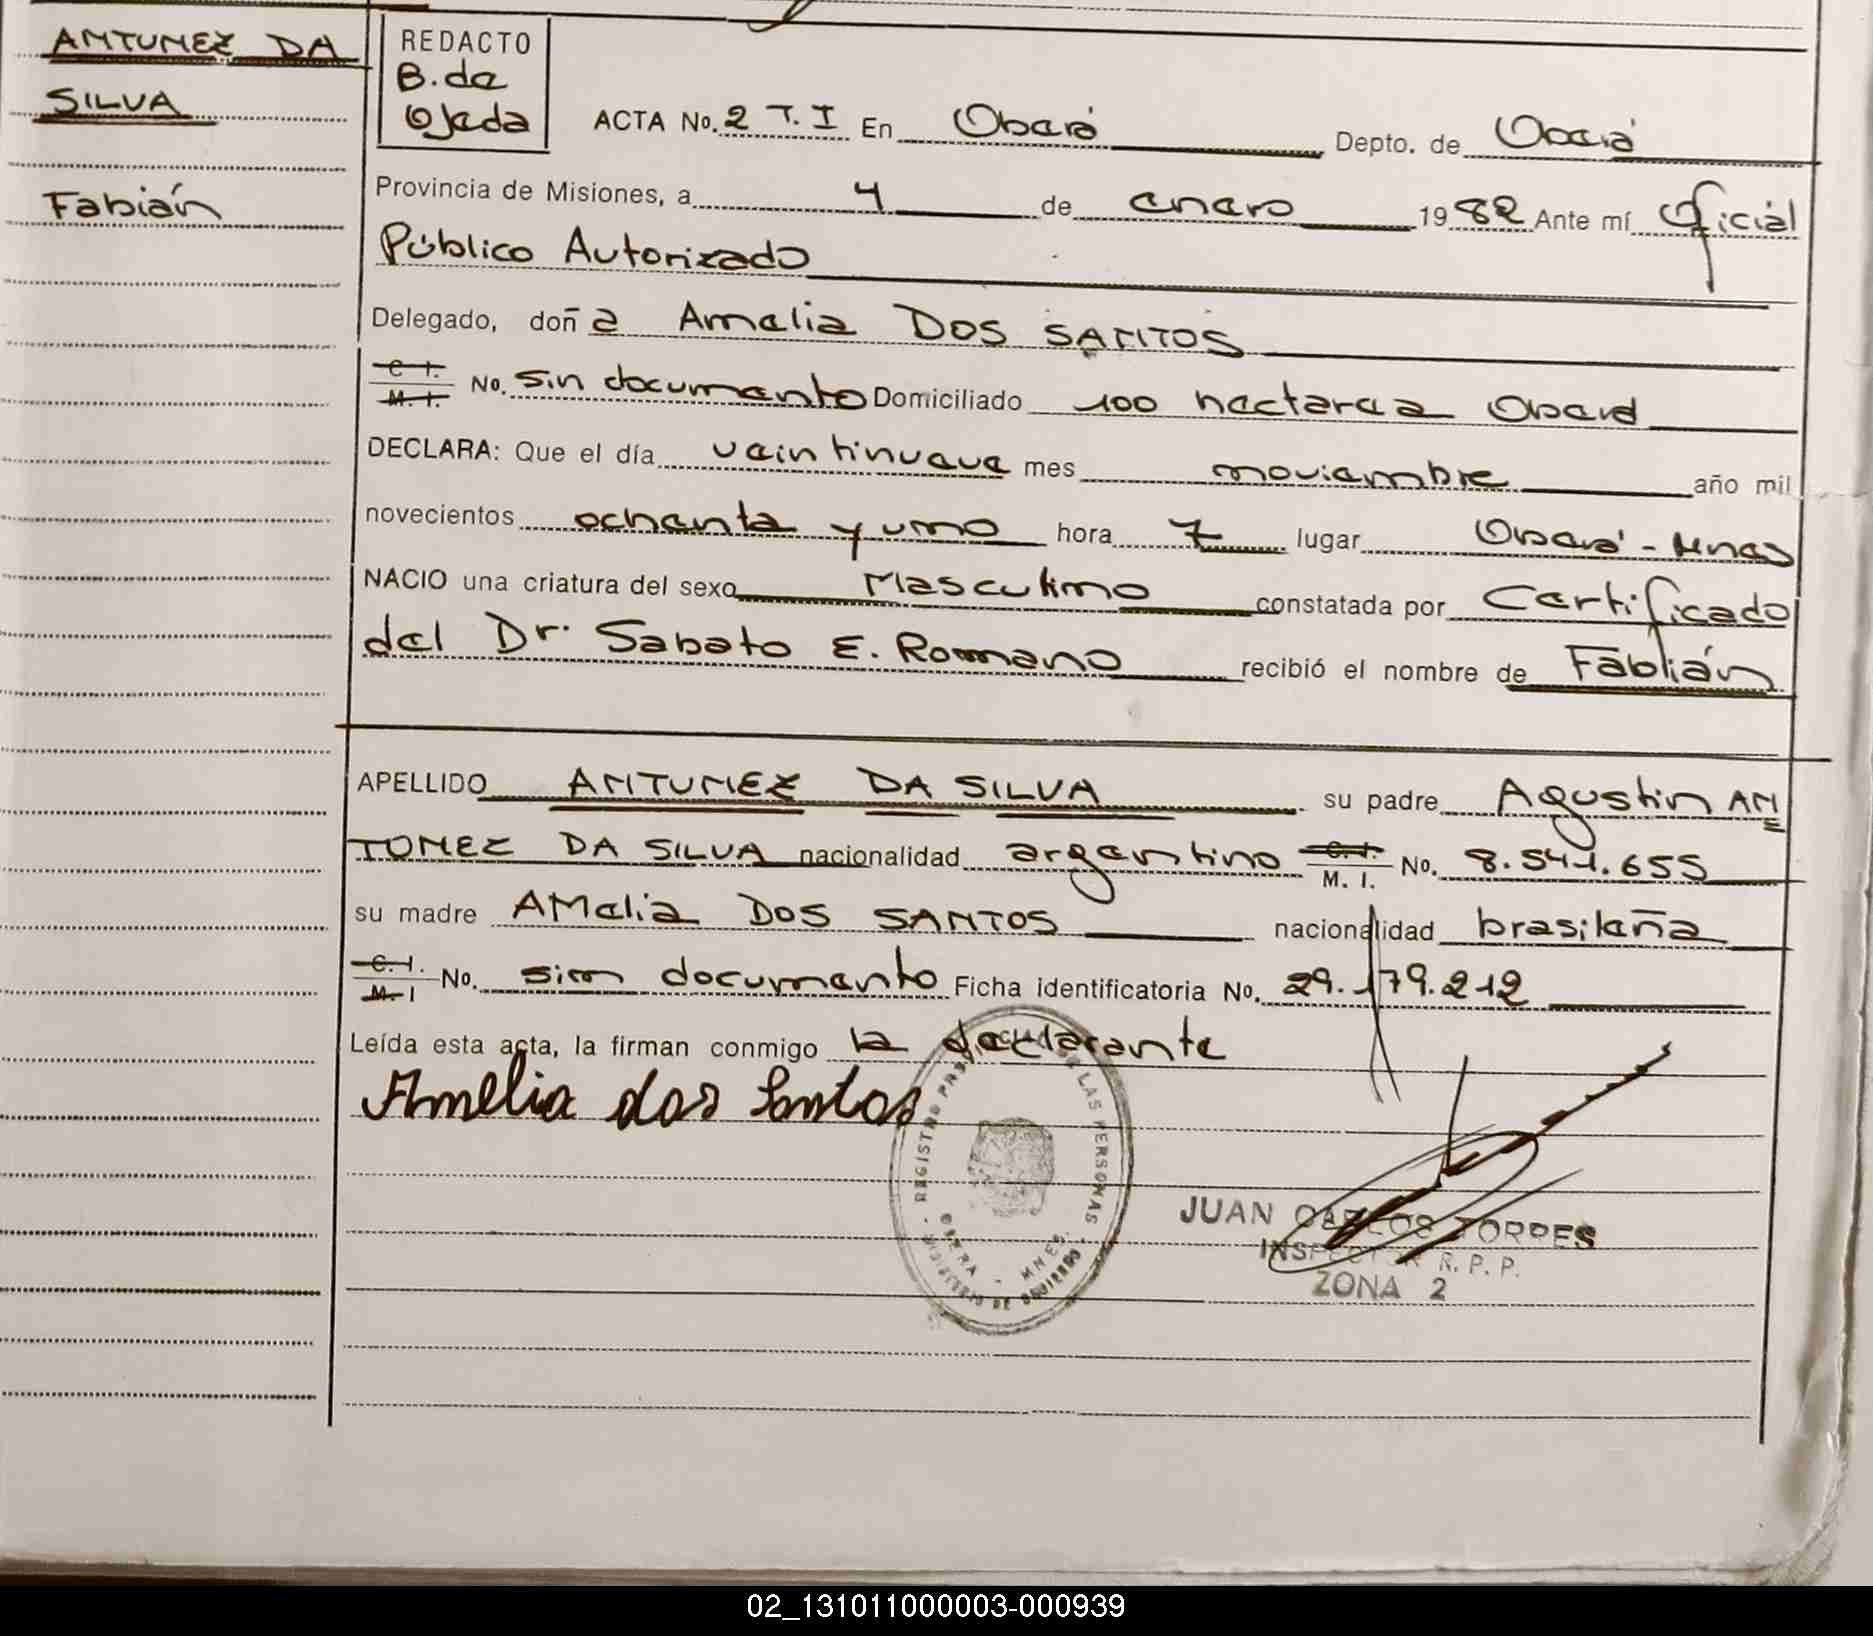 ANTUNEZ DA
SILVA
Fabián
REDACTO
B. de
Ojeda
ACTA No. 2 T. I En Oberá Depto. de Oberá
Provincia de Misiones, a 4 de enero 1982 Ante mí Oficial
Público Autorizado
Delegado, doña Amelia DOS SANTOS
C I. M. I. No. sin documento Domiciliado 100 hectarea Oberá
DECLARA: Que el día veintinueve mes noviembre año mil
novecientos ochenta y uno hora 7 lugar Oberá - Mnes
NACIO una criatura del sexo Masculino constatada por Certificado
del Dr. Sabato E. Romano recibió el nombre de Fabián
APELLIDO ANTUNEZ DA SILVA su padre Agustin AN
TONEZ DA SILVA nacionalidad argentino C. I. M. I. No. 8.541.655
su madre AMelia DOS SANTOS nacionalidad brasileña
C. I. M. I No. sin documento Ficha identificatoria No. 29.179.212
Leída esta acta, la firman conmigo la declarante
Amelia dos Santos
REGISTRO PROV. DE LAS PERSONAS
OBERA - MNES.
MINISTERIO DE GOBIERNO
JUAN CARLOS TORRES
INSPECTOR R. P. P.
ZONA 2
02_131011000003-000939